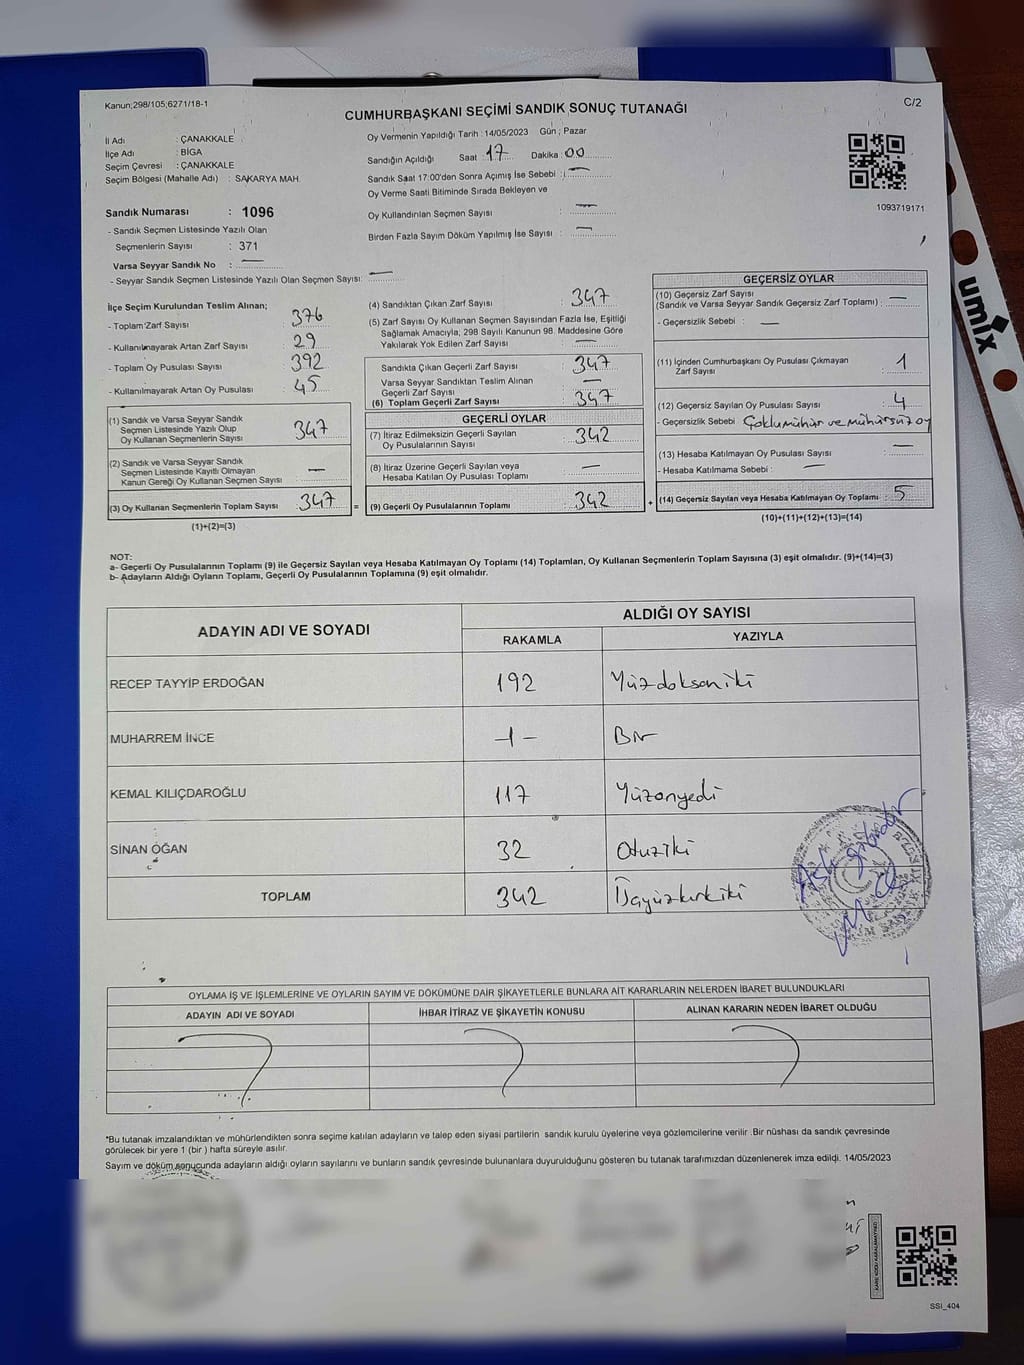 Kanun;298/105;6271/18-1
C/2
CUMHURBAŞKANI SEÇİMİ SANDIK SONUÇ TUTANAĞI
İl Adı : ÇANAKKALE
İlçe Adı : BİGA
Seçim Çevresi : ÇANAKKALE
Seçim Bölgesi (Mahalle Adı) : SAKARYA MAH.
Sandık Numarası : 1096
- Sandık Seçmen Listesinde Yazılı Olan
Seçmenlerin Sayısı : 371
Varsa Seyyar Sandık No : —
- Seyyar Sandık Seçmen Listesinde Yazılı Olan Seçmen Sayısı: —
Oy Vermenin Yapıldığı Tarih : 14/05/2023 Gün ; Pazar
Sandığın Açıldığı Saat 17 Dakika : 00
Sandık Saat 17:00'den Sonra Açımış İse Sebebi : —
Oy Verme Saati Bitiminde Sırada Bekleyen ve
Oy Kullandırılan Seçmen Sayısı : —
Birden Fazla Sayım Döküm Yapılmış İse Sayısı : —
1093719171
İlçe Seçim Kurulundan Teslim Alınan;
- Toplam Zarf Sayısı : 376
- Kullanılmayarak Artan Zarf Sayısı : 29
- Toplam Oy Pusulası Sayısı : 392
- Kullanılmayarak Artan Oy Pusulası : 45
(1) Sandık ve Varsa Seyyar Sandık
Seçmen Listesinde Yazılı Olup
Oy Kullanan Seçmenlerin Sayısı : 347
(2) Sandık ve Varsa Seyyar Sandık
Seçmen Listesinde Kayıtlı Olmayan
Kanun Gereği Oy Kullanan Seçmen Sayısı : —
(3) Oy Kullanan Seçmenlerin Toplam Sayısı : 347 =
(1)+(2)=(3)
(4) Sandıktan Çıkan Zarf Sayısı : 347
(5) Zarf Sayısı Oy Kullanan Seçmen Sayısından Fazla İse, Eşitliği
Sağlamak Amacıyla; 298 Sayılı Kanunun 98. Maddesine Göre
Yakılarak Yok Edilen Zarf Sayısı : —
Sandıkta Çıkan Geçerli Zarf Sayısı : 347
Varsa Seyyar Sandıktan Teslim Alınan
Geçerli Zarf Sayısı : —
(6) Toplam Geçerli Zarf Sayısı : 347
GEÇERLİ OYLAR
(7) İtiraz Edilmeksizin Geçerli Sayılan
Oy Pusulalarının Sayısı : 342
(8) İtiraz Üzerine Geçerli Sayılan veya
Hesaba Katılan Oy Pusulaları Toplamı : —
(9) Geçerli Oy Pusulalarının Toplamı : 342 +
GEÇERSİZ OYLAR
(10) Geçersiz Zarf Sayısı
(Sandık ve Varsa Seyyar Sandık Geçersiz Zarf Toplamı) : —
- Geçersizlik Sebebi : —
(11) İçinden Cumhurbaşkanı Oy Pusulası Çıkmayan
Zarf Sayısı : 1
(12) Geçersiz Sayılan Oy Pusulası Sayısı : 4
- Geçersizlik Sebebi : Çoklu mühür ve mühürsüz oy
(13) Hesaba Katılmayan Oy Pusulası Sayısı : —
- Hesaba Katılmama Sebebi : —
(14) Geçersiz Sayılan veya Hesaba Katılmayan Oy Toplamı : 5
(10)+(11)+(12)+(13)=(14)
NOT:
a- Geçerli Oy Pusulalarının Toplamı (9) ile Geçersiz Sayılan veya Hesaba Katılmayan Oy Toplamı (14) Toplamları, Oy Kullanan Seçmenlerin Toplam Sayısına (3) eşit olmalıdır. (9)+(14)=(3)
b- Adayların Aldığı Oyların Toplamı, Geçerli Oy Pusulalarının Toplamına (9) eşit olmalıdır.
ADAYIN ADI VE SOYADI
ALDIĞI OY SAYISI
RAKAMLA YAZIYLA
RECEP TAYYİP ERDOĞAN 192 Yüzdoksaniki
MUHARREM İNCE -1- Bir
KEMAL KILIÇDAROĞLU 117 Yüzonyedi
SİNAN OĞAN 32 Otuziki
TOPLAM 342 Üçyüzkırkiki
Aslı gibidir
OYLAMA İŞ VE İŞLEMLERİNE VE OYLARIN SAYIM VE DÖKÜMÜNE DAİR ŞİKAYETLERLE BUNLARA AİT KARARLARIN NELERDEN İBARET BULUNDUKLARI
ADAYIN ADI VE SOYADI İHBAR İTİRAZ VE ŞİKAYETİN KONUSU ALINAN KARARIN NEDEN İBARET OLDUĞU
*Bu tutanak imzalandıktan ve mühürlendikten sonra seçime katılan adayların ve talep eden siyasi partilerin sandık kurulu üyelerine veya gözlemcilerine verilir. Bir nüshası da sandık çevresinde
görülecek bir yere 1 (bir ) hafta süreyle asılır.
Sayım ve döküm sonucunda adayların aldığı oyların sayılarını ve bunların sandık çevresinde bulunanlara duyurulduğunu gösteren bu tutanak tarafımızdan düzenlenerek imza edildi. 14/05/2023
KARE KODU KARALAMAYINIZ
SSİ_404
umix